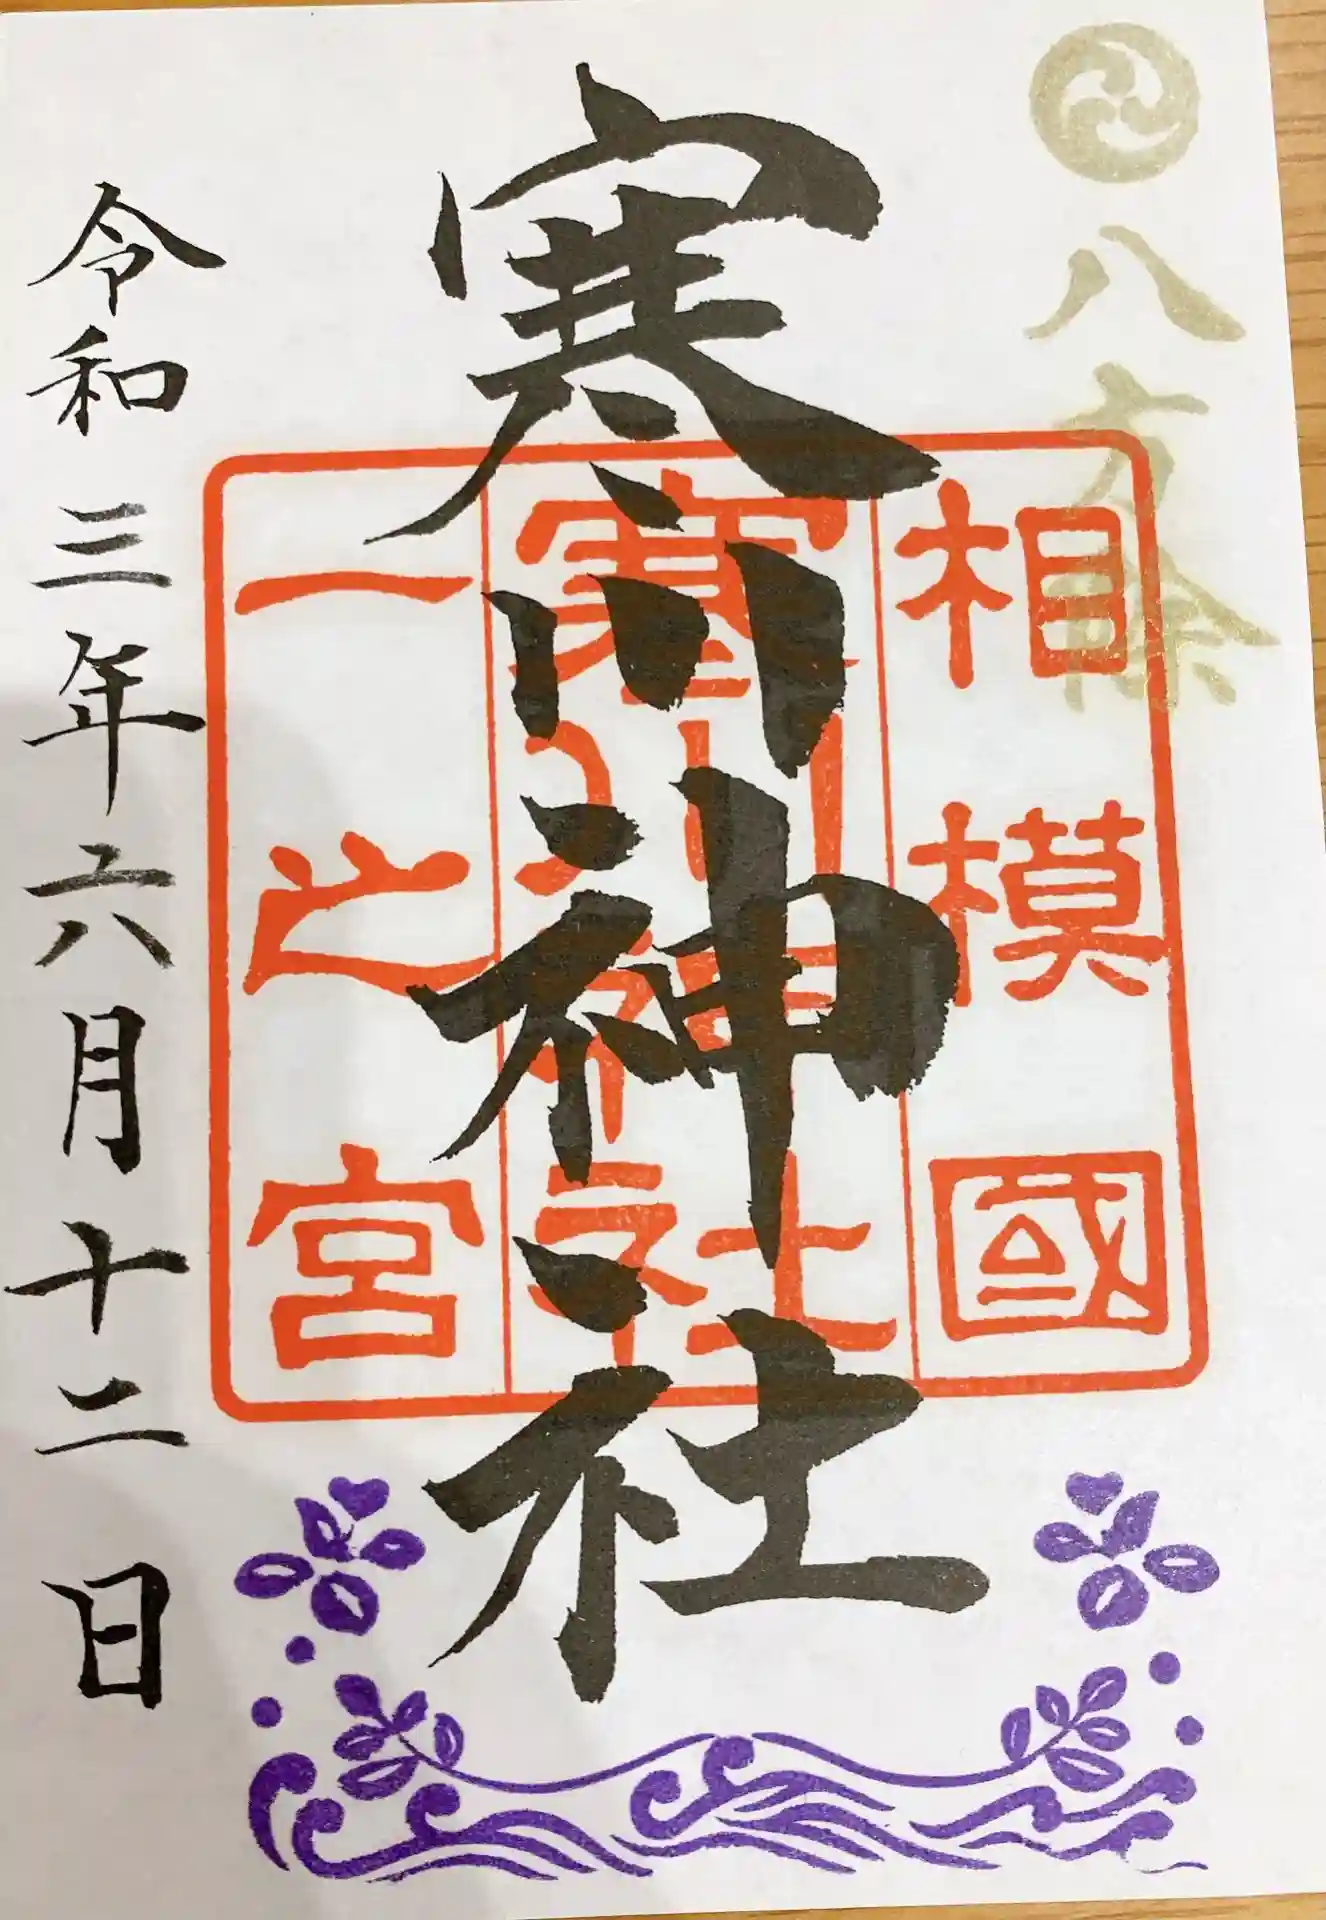 八方除
寒川神社
相模國
寒川神社
一之宮
令和三年六月十二日